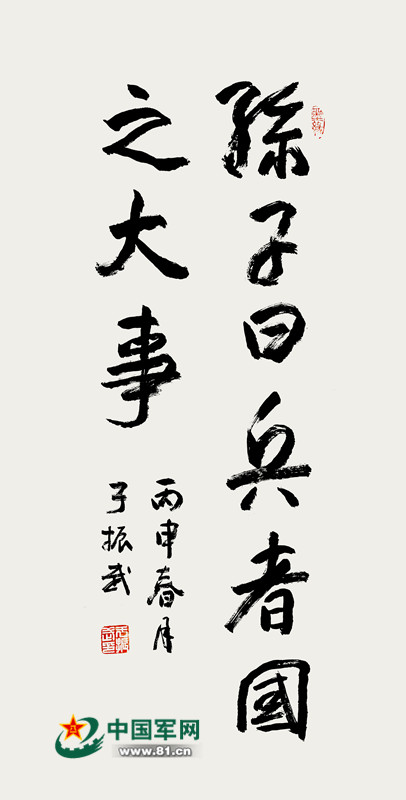 孫子曰兵者國
之大事
丙申春月
于振武
中国军网
www.81.cn